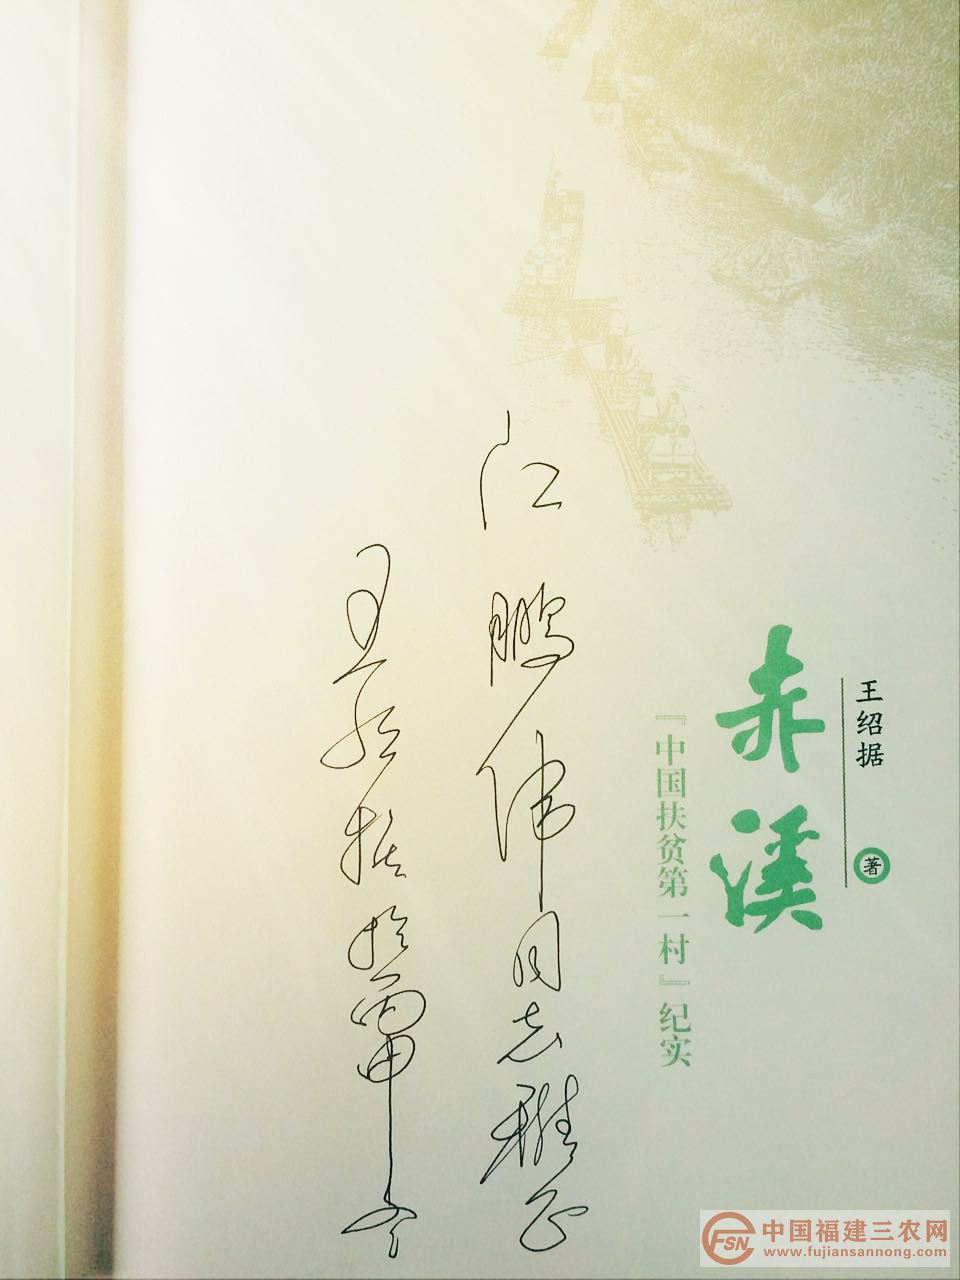 王绍据 著
赤溪
『中国扶贫第一村』纪实
江鹏伟同志雅正
王绍据 于丙申冬
中国福建三农网
FSN
www.fujiansannong.com